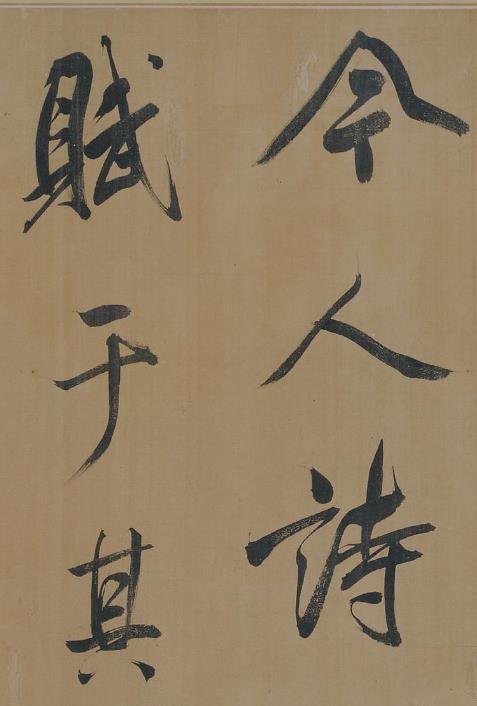 今人詩
賦于其